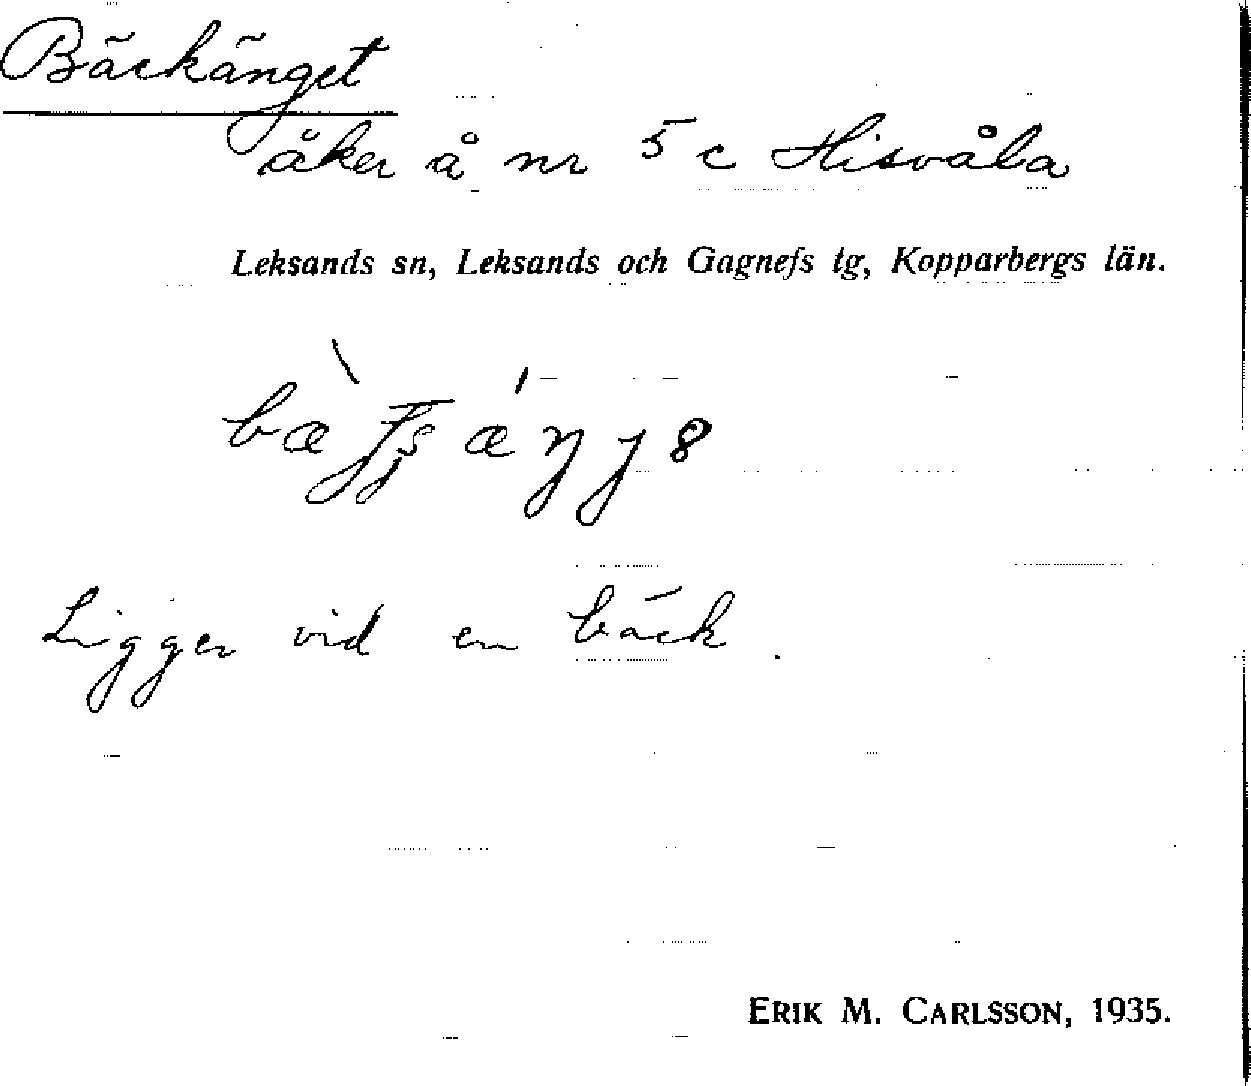 Bäckänget
åker å nr 5 c Hisvåla
Leksands sn, Leksands och Gagnefs tg, Kopparbergs län.
Ligger vid en bäck.
ERIK M. CARLSSON, 1935.